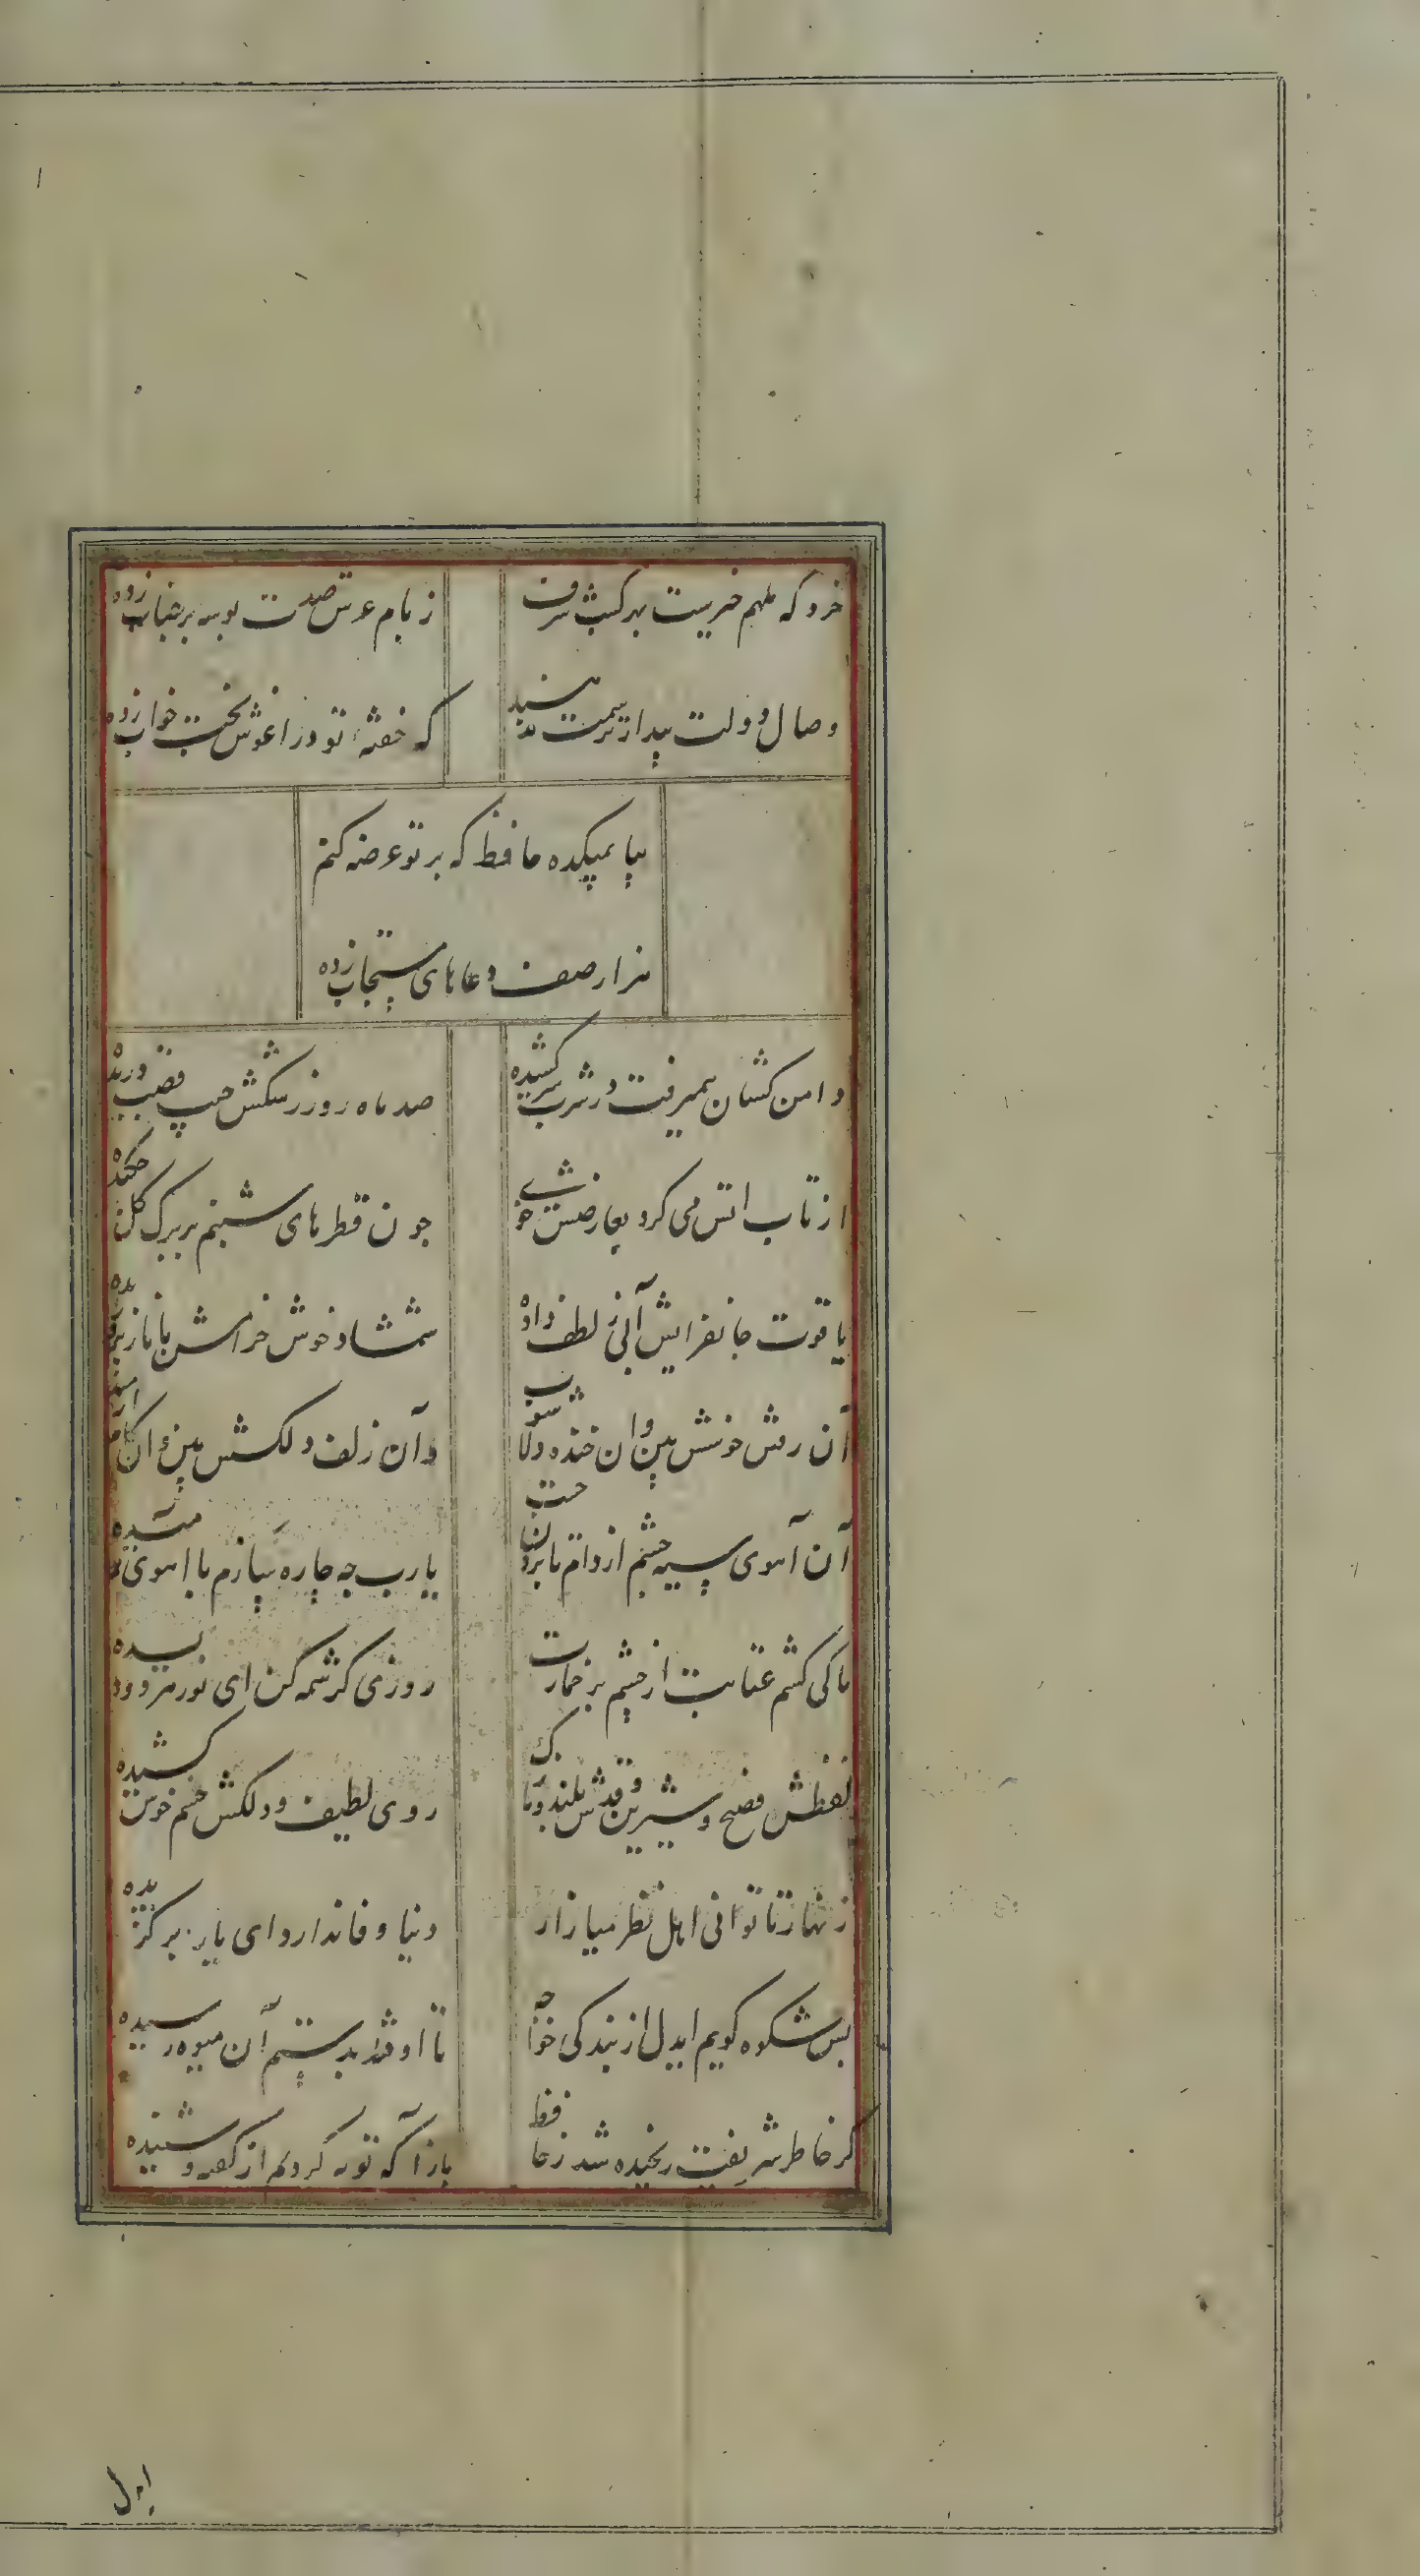 خرد که ملهم خیریست بهر کسب شرف
ز بام عرش صدت بوسه بر جناب زده
وصال دولت بیدار ترسمت ندهند
که خفتهٔ تو در اغوش بخت خواب زده
بیا بمیکده حافظ که بر تو عرضه کنم
هزار صف دعاهای مستجاب زده
دامن کشان همیرفت در شرب سرکشیده
صد ماه رو ز رشکش جیب قصب دریده
از تاب اتش می کرد بعارضش خوی
چون قطرهای شبنم بر برک کل چکیده
یاقوت جانفزایش از آب لطف زاده
شمشاد خوش خرامش با ناز پروریده
آن رفتن خوشش بین وان خنده دلاشوب
وآن زلف دلکشش بین وان کام ارمیده
آن آهوی سیه چشم از دام ما برون جست
یا رب چه چاره سازم با اهوی رمیده
تا کی کشم عتابت از چشم پر خمارت
روزی کرشمه کن ای نور هر دو دیده
لفظش فصیح و شیرین و قدش بلند و نازک
روی لطیف و دلکش چشم خوش کشیده
زنهار تا توانی اهل نظر میازار
دنیا وفا ندارد ای یار برکزیده
بس شکوه کویم ایدل از بندکی خواجه
تا اوفتد بدستم آن میوه رسیده
کر خاطر شریفت رنجیده شد ز حافظ
بازآ که توبه کردیم از کفته و شنیده